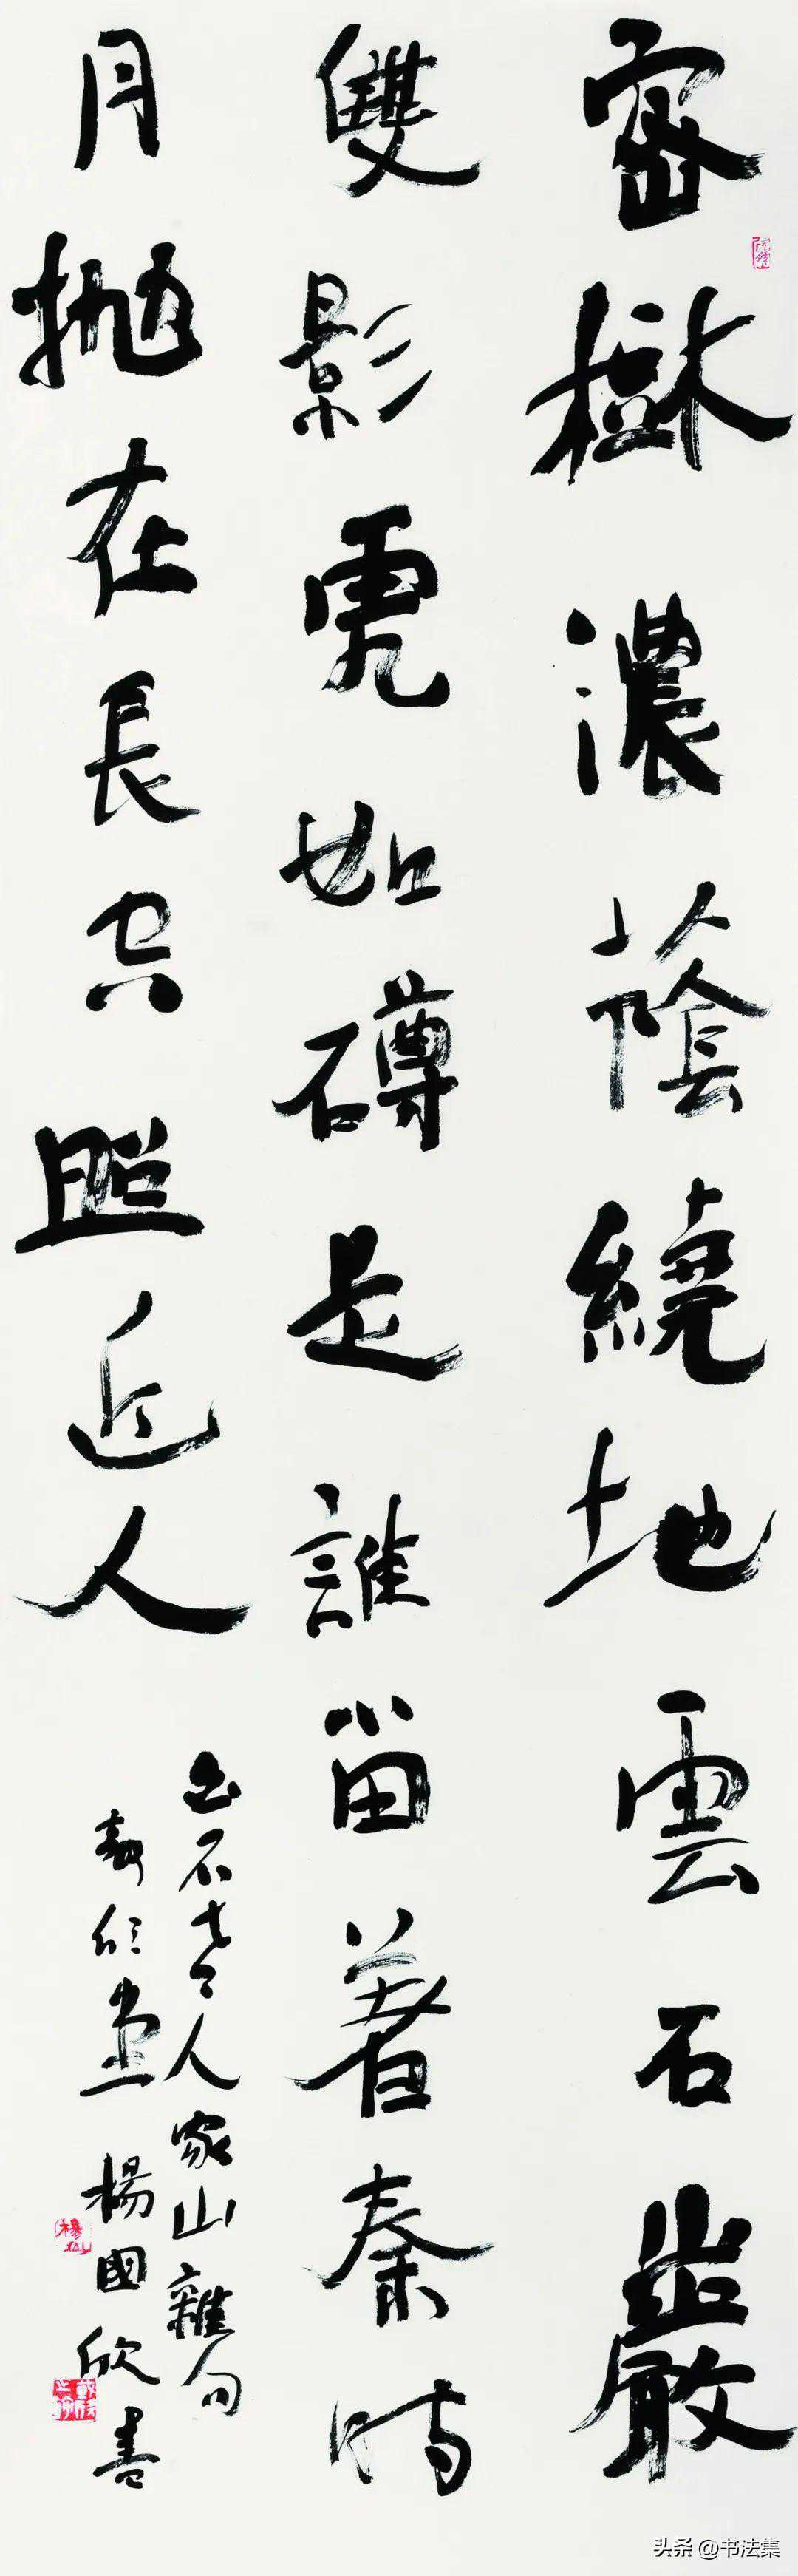 密樹濃蔭繞地雲石巖
雙影虎如是誰留著秦時
月拋在長空照近人
白石老人家山雜句
楊國欣書
头条 @书法集